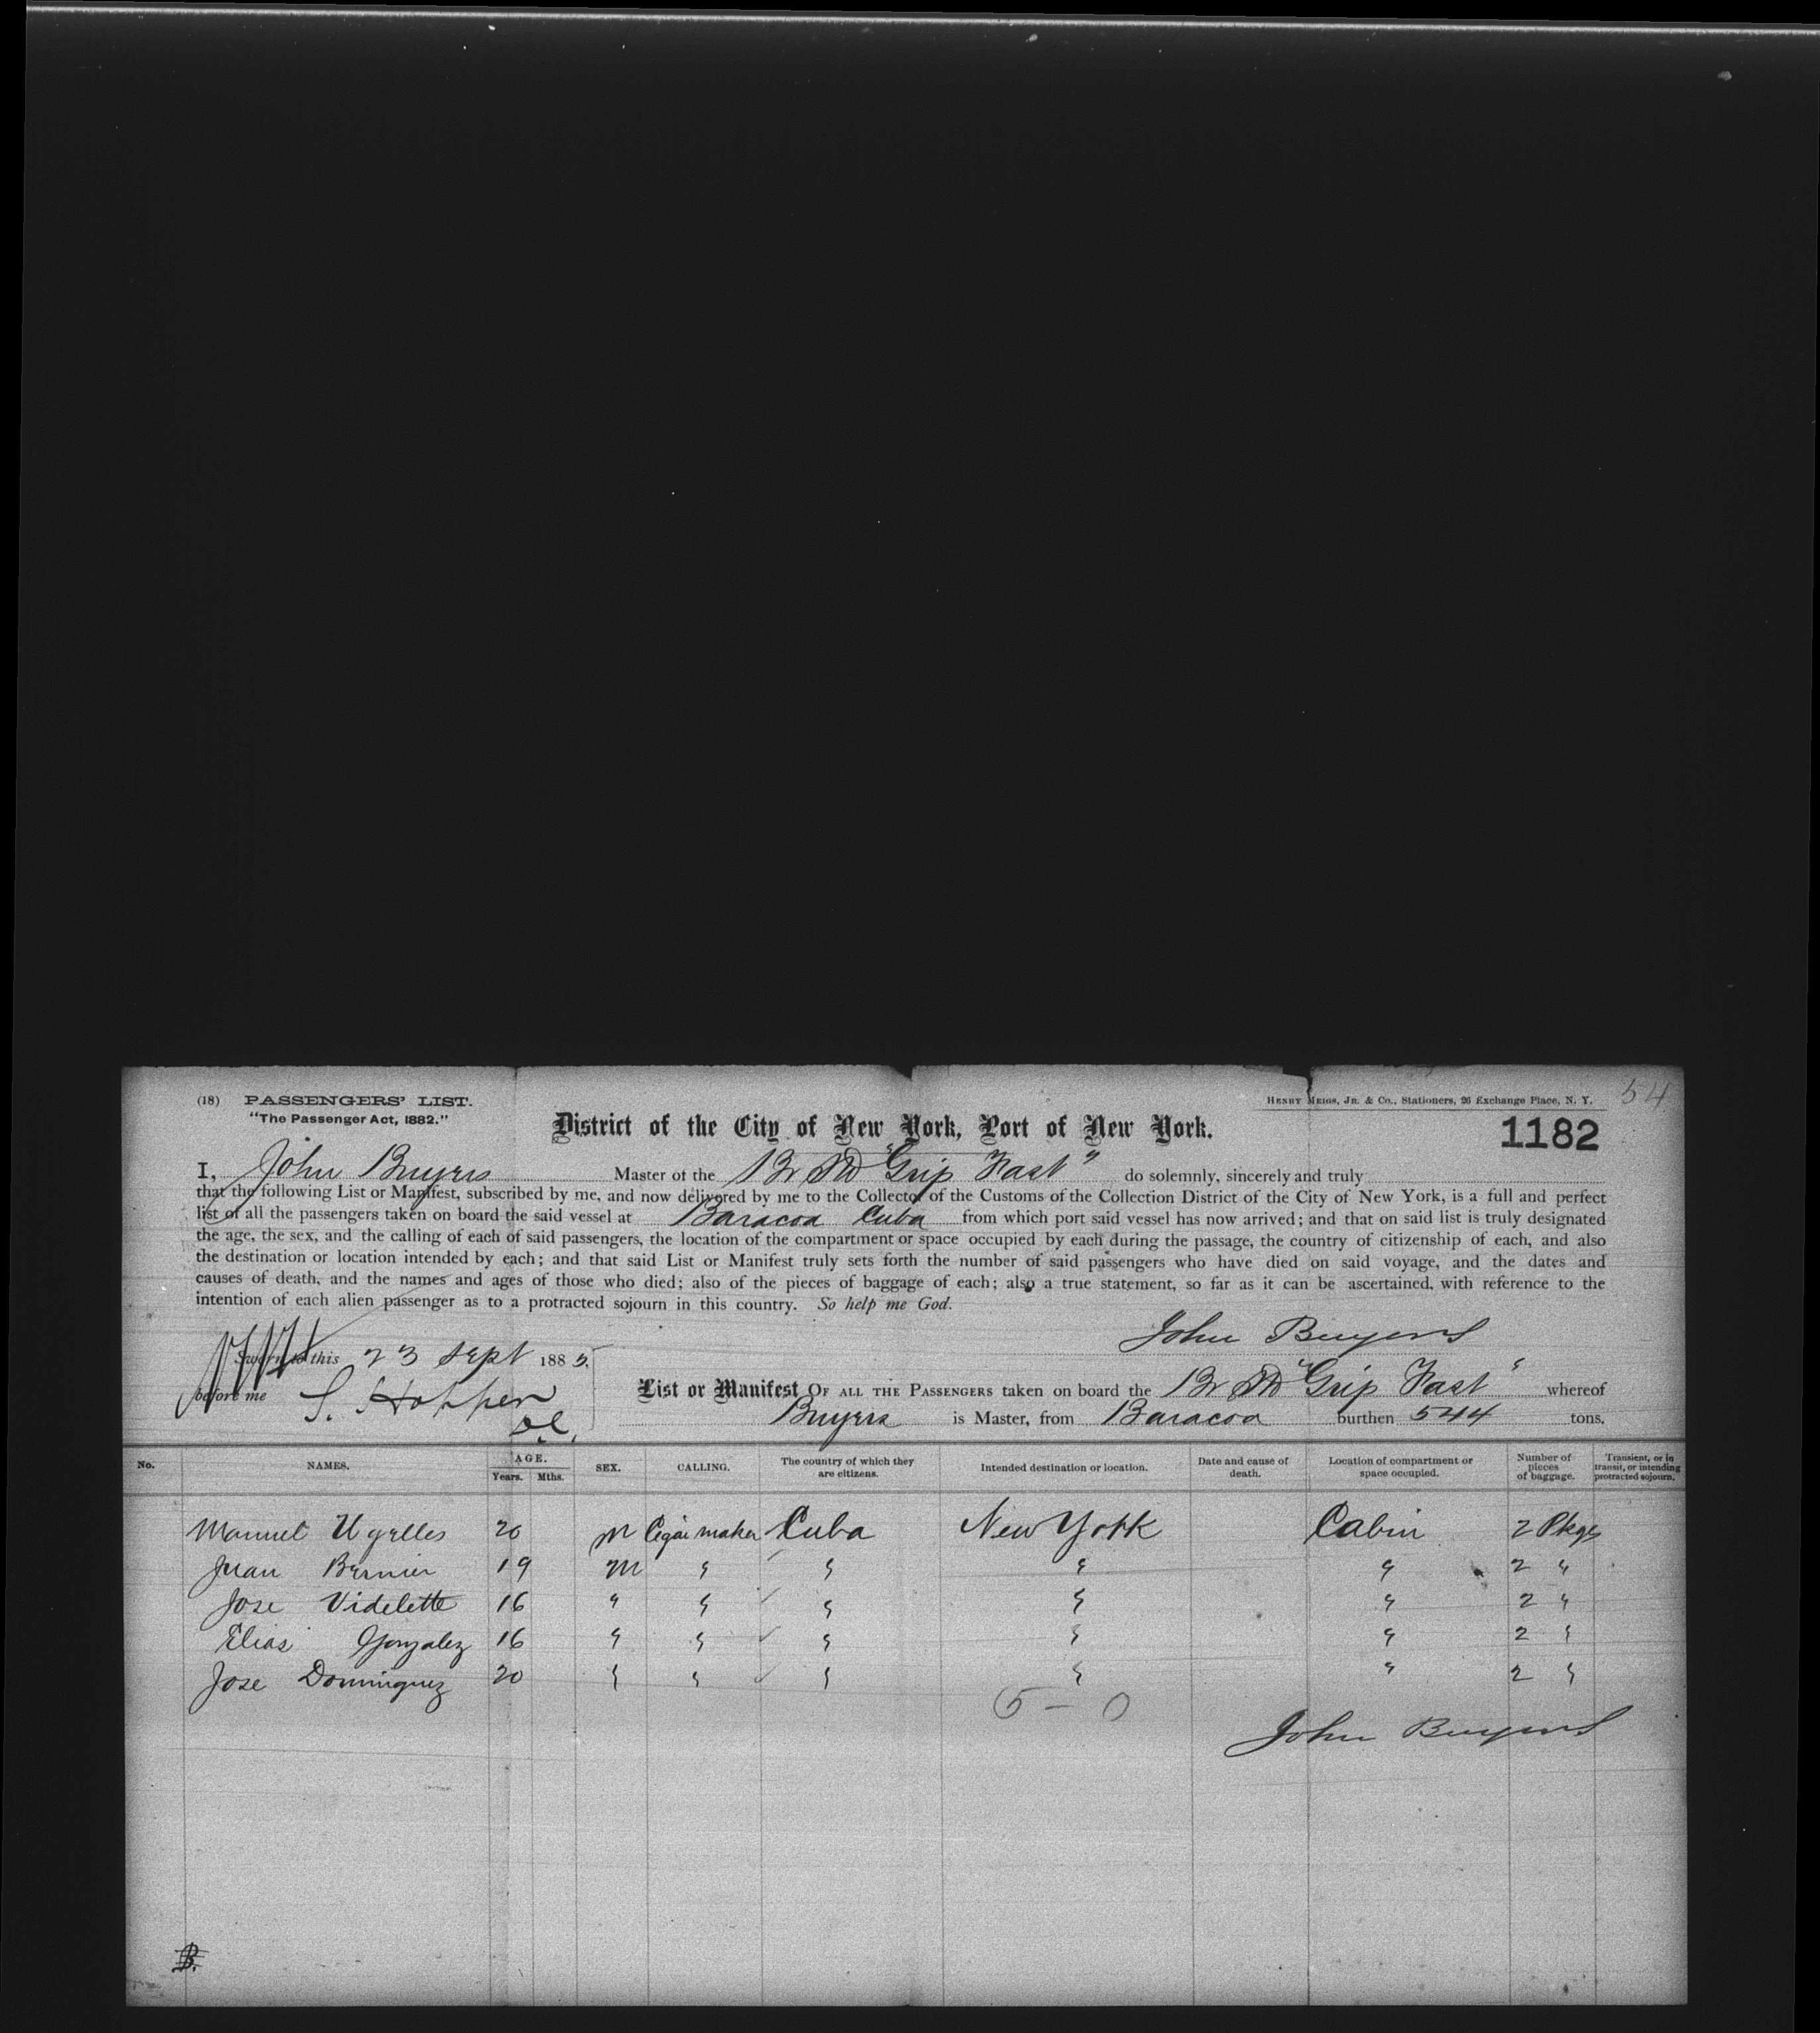 54
(18) PASSENGERS' LIST. HENRY MEIGS, JR. & CO., Stationers, 26 Exchange Place, N. Y.
"The Passenger Act, 1882."
District of the City of New York, Port of New York. 1182
I, John Buyers Master of the Br "Grip Fast" do solemnly, sincerely and truly
that the following List or Manifest, subscribed by me, and now delivered by me to the Collector of the Customs of the Collection District of the City of New York, is a full and perfect
list of all the passengers taken on board the said vessel at Baracoa Cuba from which port said vessel has now arrived; and that on said list is truly designated
the age, the sex, and the calling of each of said passengers, the location of the compartment or space occupied by each during the passage, the country of citizenship of each, and also
the destination or location intended by each; and that said List or Manifest truly sets forth the number of said passengers who have died on said voyage, and the dates and
causes of death, and the names and ages of those who died; also of the pieces of baggage of each; also a true statement, so far as it can be ascertained, with reference to the
intention of each alien passenger as to a protracted sojourn in this country. So help me God.
John Buyers
Sworn to this 23 Sept 1885.
before me S. Hopper
List or Manifest OF ALL THE PASSENGERS taken on board the Br "Grip Fast" whereof
Buyers is Master, from Baracoa burthen 544 tons.
No. NAMES. AGE. Years. Mths. SEX. CALLING. The country of which they are citizens. Intended destination or location. Date and cause of death. Location of compartment or space occupied. Number of pieces of baggage. Transient, or in transit, or intending protracted sojourn.
Manuel Ugelles 20 M Cigar maker Cuba New York Cabin 2 Pkges
Juan Bernier 19 M " " " " 2 "
Jose Videlette 16 " " " " " 2 "
Elias Gonzalez 16 " " " " " 2 "
Jose Dominguez 20 " " " " " 2 "
5 - 0
John Buyers
B.